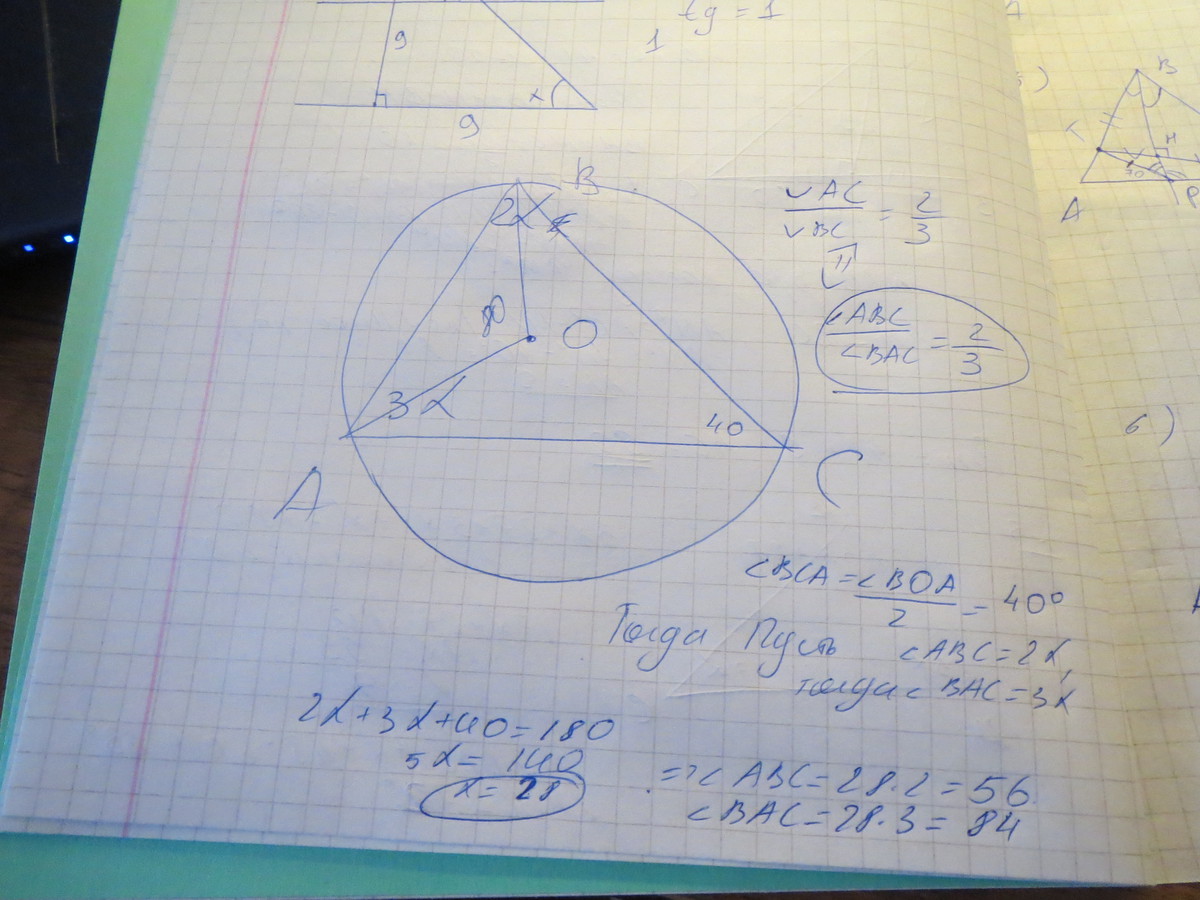 9
x
9
tg = 1
1
5)
B
T
H
A
P
B
2α
80
O
3α
40
A
C
◡AC / ◡BC = 2/3
⇓
∠ABC / ∠BAC = 2/3
6)
∠BCA = ∠BOA / 2 = 40°
Тогда Пусть ∠ABC = 2α,
тогда ∠BAC = 3α
2α + 3α + 40 = 180
5α = 140
α = 28
=> ∠ABC = 28·2 = 56
∠BAC = 28·3 = 84